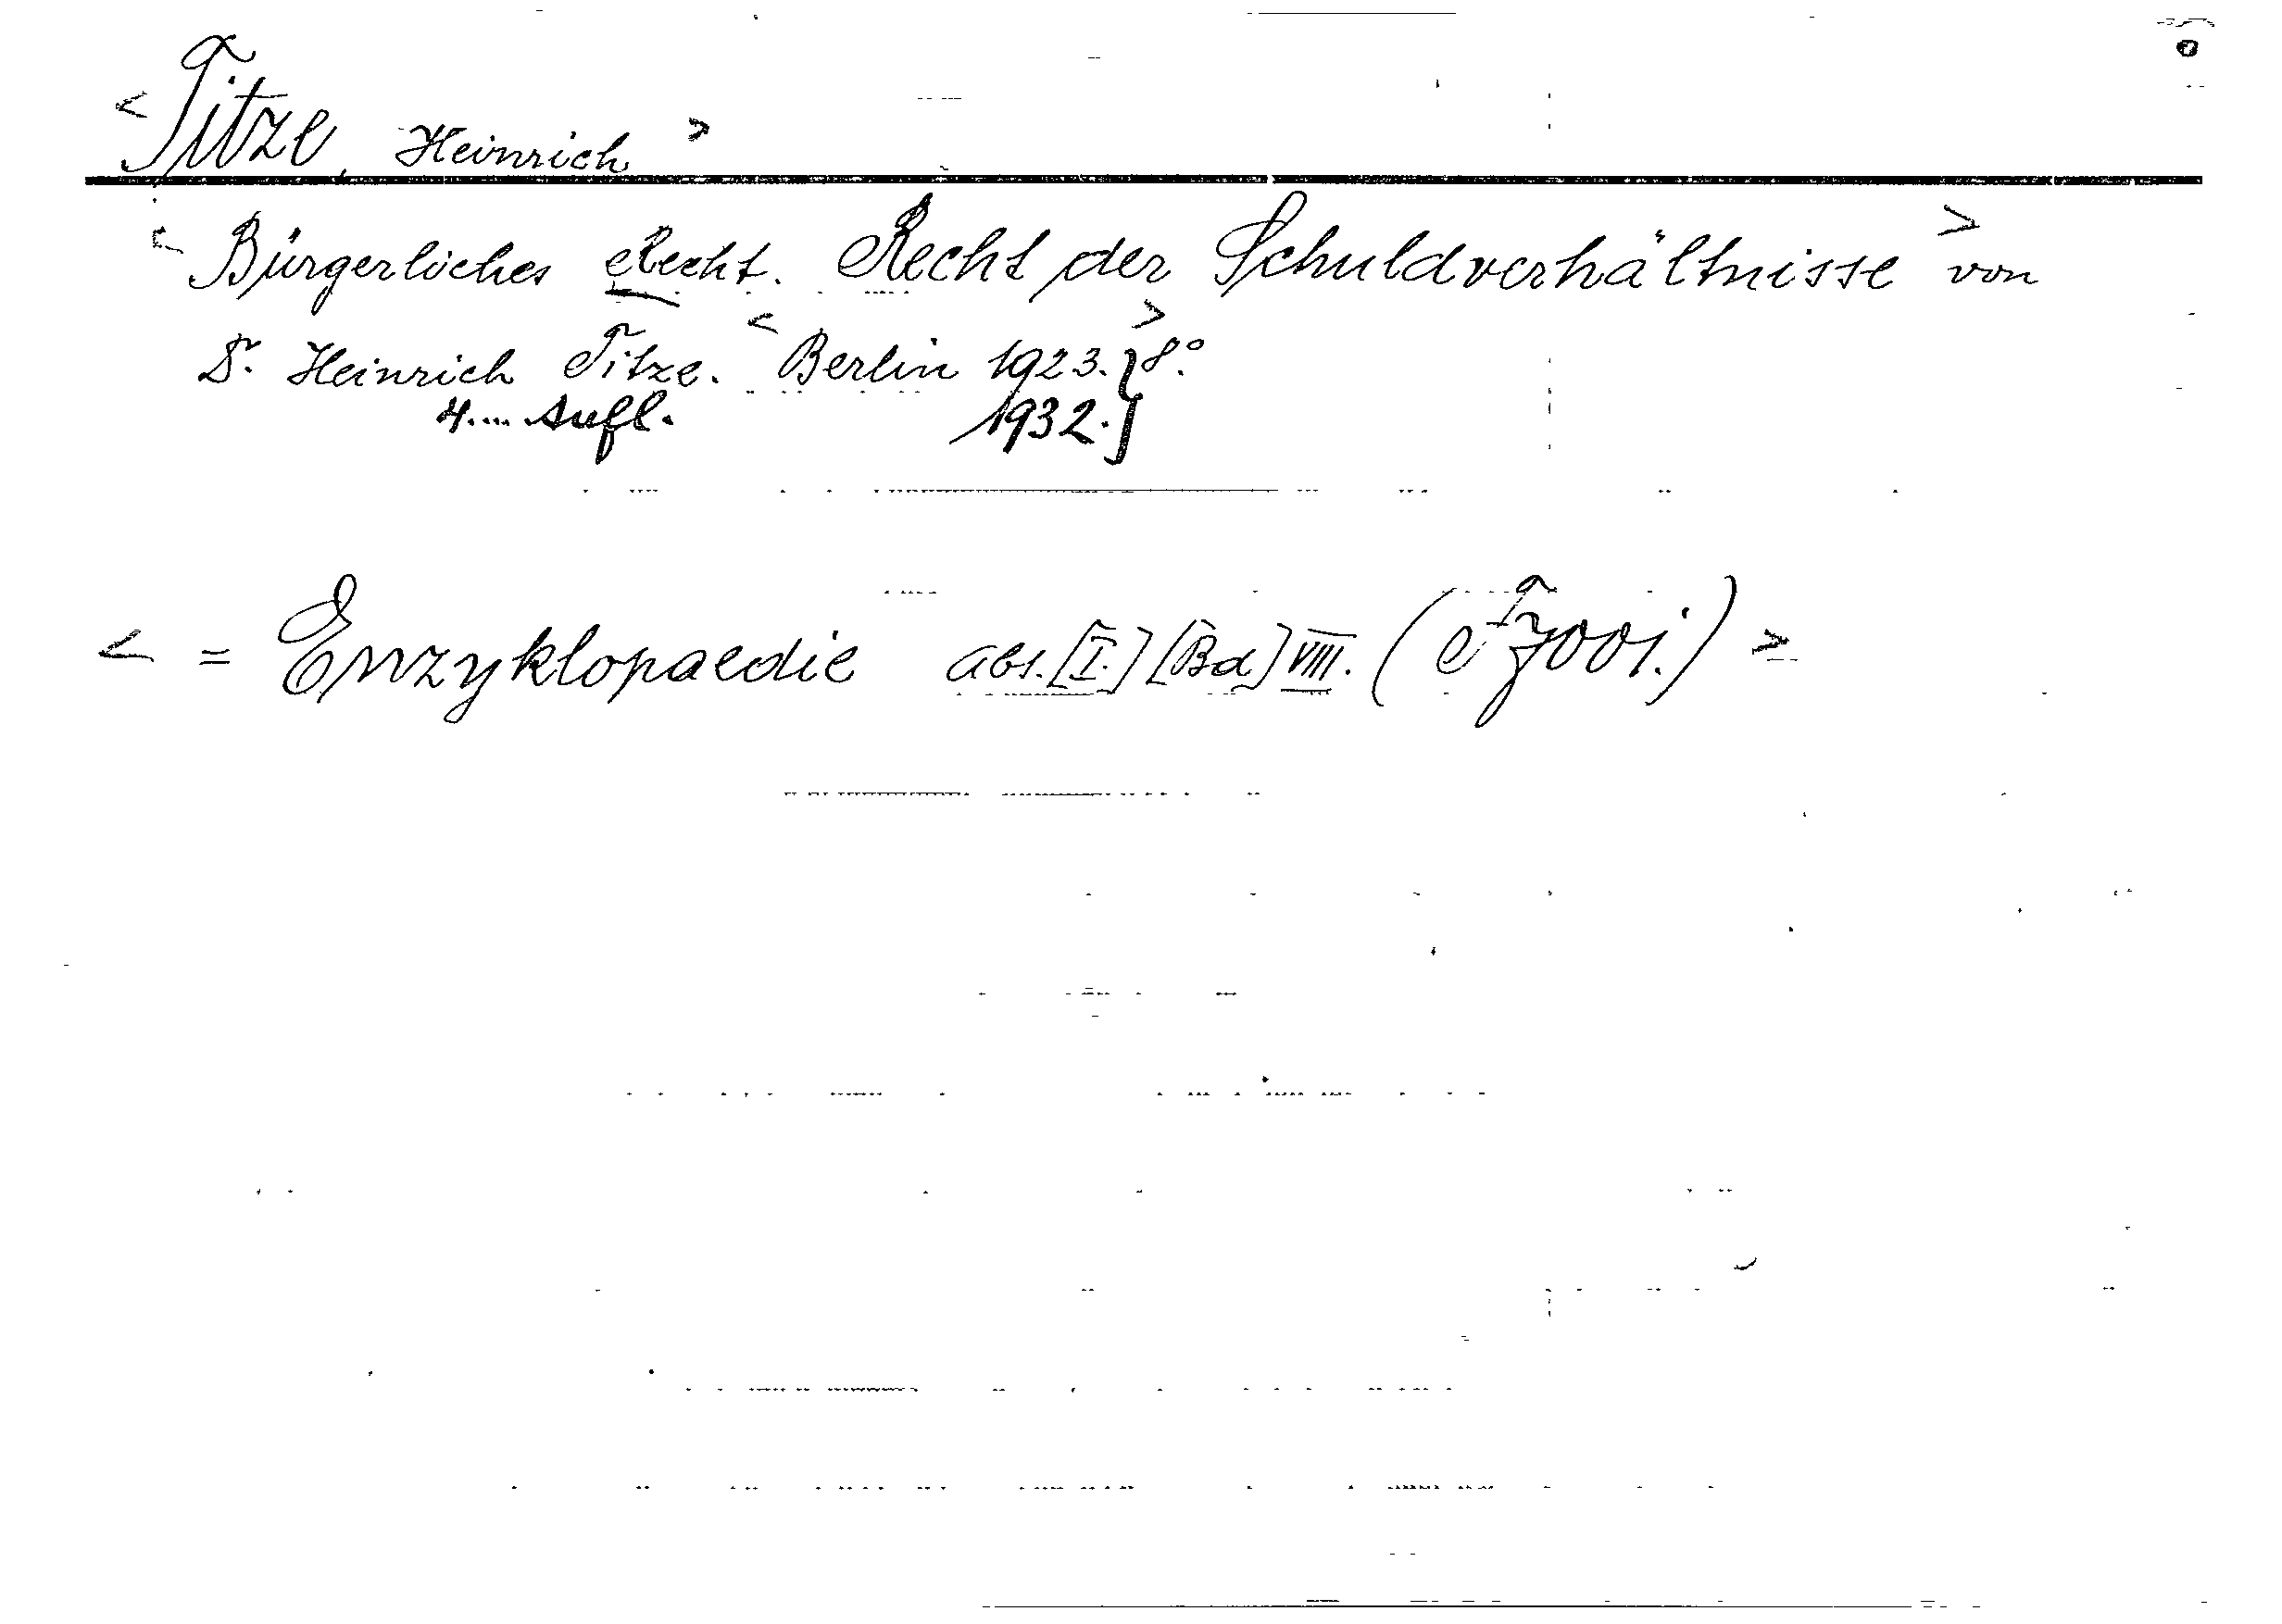 < Titze, Heinrich >
< Bürgerliches Recht. Recht der Schuldverhältnisse > von
Dr. Heinrich Titze. < Berlin 1923. } > 8°.
4.... Aufl. 1932. }
< = Enzyklopaedie abt. [I.] [Bd] VIII. ( ) >